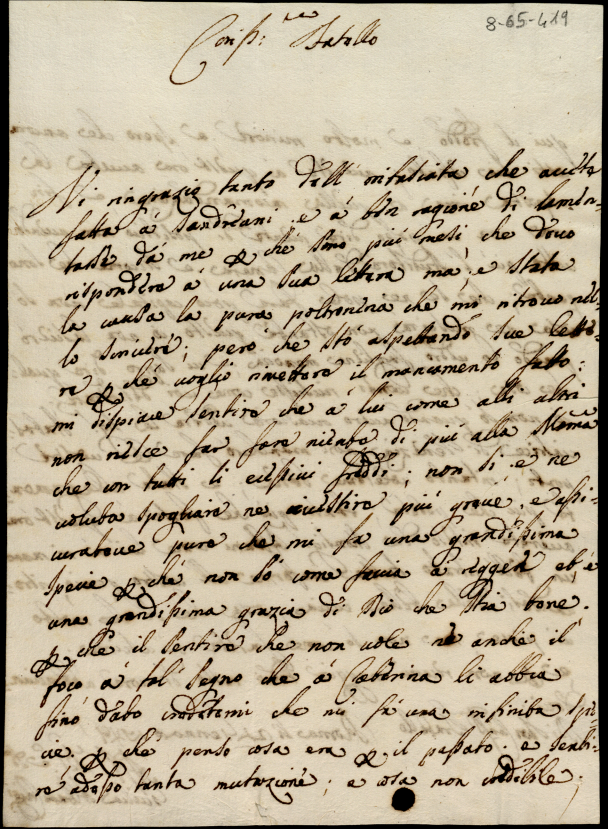 8-65-419
Fratello
Vi ringrazio tanto dell' imbasciata che avete
fatta à Sandreani e à ben ragione di lamen-
tarsi da me che sono più mesi, che devo
rispondere à una sua lettera mà, e stata
la causa la pura poltroneria che mi ritrovo nel-
lo scrivere; però che stò aspettando sue lette-
re p. ché voglio rimettere il mancamento fatto:
mi dispiace sentire che à lui come alli altri
non riesce far fare niente di più alla Mamà
che con tutti li eccessivi freddi; non si è ne
voluta spogliare ne vestire più grave, e assi-
curateve pure che mi fa una grandissima
specie p. ché non sò come faccia à reggere et è
una grandissima grazia di Dio che stia bene.
p. che il sentire che non vole nè anche il
foco à tal segno che à Catterina li abbia
sino dato credetemi che mi fà una infinita spe-
cie. p. ché penso cosa era p. il passato. e senti-
re adesso tanta mutazione; e cosa non credibile;